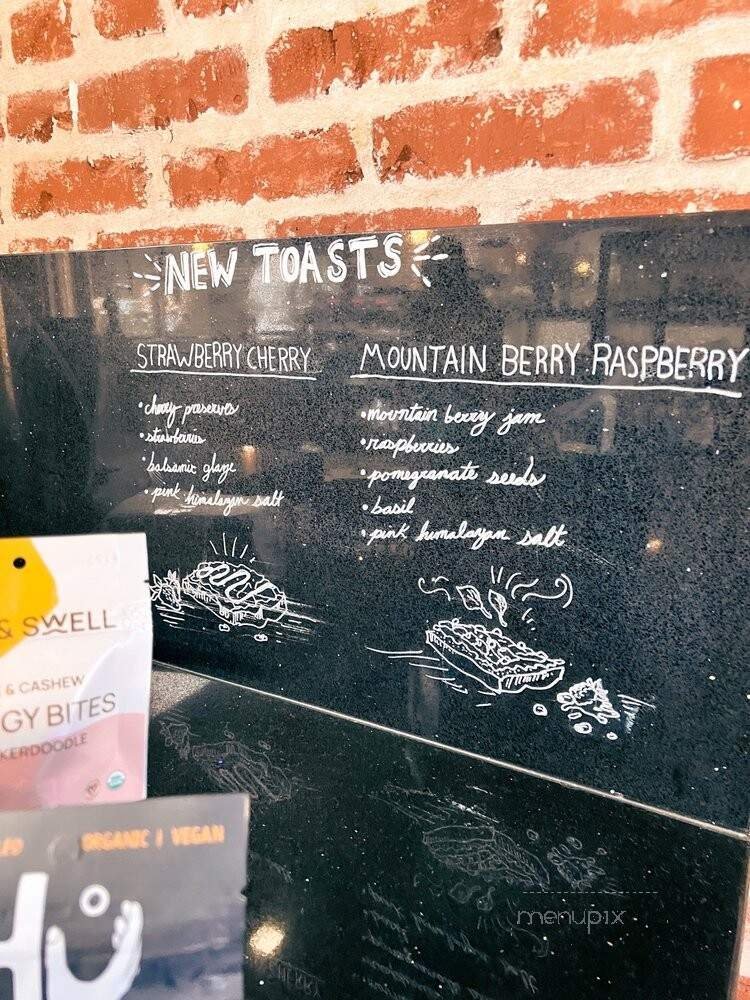 NEW TOASTS
STRAWBERRY CHERRY
• cherry preserves
• strawberries
• balsamic glaze
• pink himalayan salt
MOUNTAIN BERRY RASPBERRY
• mountain berry jam
• raspberries
• pomegranate seeds
• basil
• pink himalayan salt
& SWELL
& CASHEW
GY BITES
KERDOODLE
ORGANIC | VEGAN
HU
menupix